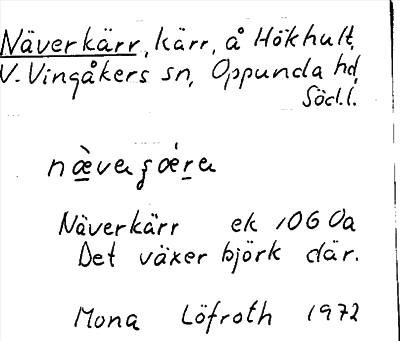 Näverkärr, kärr, å Hökhult,
V. Vingåkers sn, Oppunda hd,
Södl.
Näverkärr ek 10G 0a
Det växer björk där.
Mona Löfroth 1972